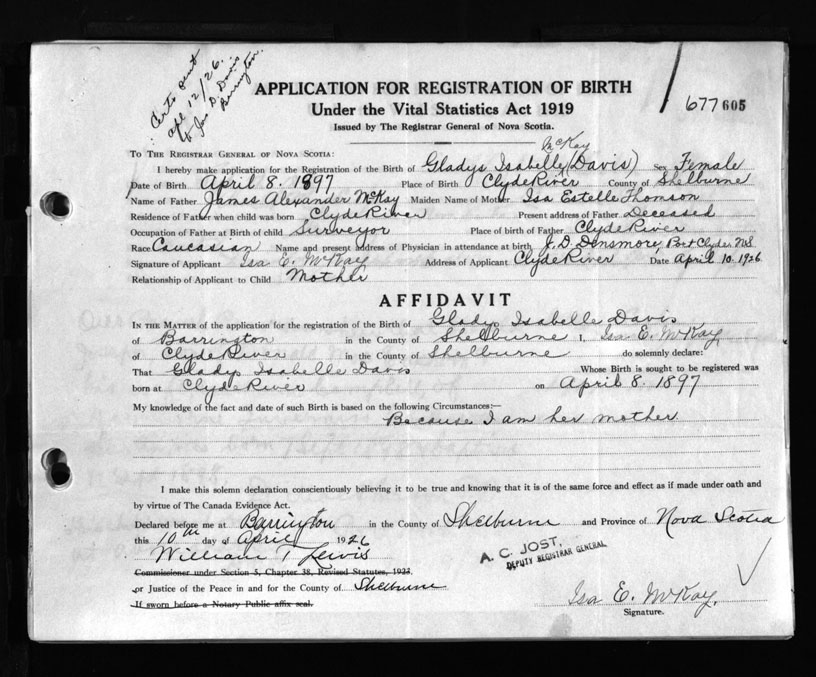 Certs sent
apl 12/26.
to Jas D. Davis
Barrington.
APPLICATION FOR REGISTRATION OF BIRTH
Under the Vital Statistics Act 1919
Issued by The Registrar General of Nova Scotia.
677 605
TO THE REGISTRAR GENERAL OF NOVA SCOTIA:
McKay
I hereby make application for the Registration of the Birth of Gladys Isabelle (Davis) Sex Female
Date of Birth April 8. 1897 Place of Birth Clyde River County of Shelburne
Name of Father James Alexander McKay Maiden Name of Mother Isa Estelle Thomson
Residence of Father when child was born Clyde River Present address of Father Deceased
Occupation of Father at Birth of child Surveyor Place of birth of Father Clyde River
Race Caucasian Name and present address of Physician in attendance at birth J. D. Densmore, Port Clyde NS
Signature of Applicant Isa E. McKay Address of Applicant Clyde River Date April 10. 1926
Relationship of Applicant to Child Mother
AFFIDAVIT
IN THE MATTER of the application for the registration of the Birth of Gladys Isabelle Davis
of Barrington in the County of Shelburne I, Isa E. McKay
of Clyde River in the County of Shelburne do solemnly declare:
That Gladys Isabelle Davis Whose Birth is sought to be registered was
born at Clyde River on April 8. 1897
My knowledge of the fact and date of such Birth is based on the following Circumstances:—
Because I am her mother.
I make this solemn declaration conscientiously believing it to be true and knowing that it is of the same force and effect as if made under oath and
by virtue of The Canada Evidence Act.
Declared before me at Barrington in the County of Shelburne and Province of Nova Scotia
this 10th day of April 1926
William T Lewis
A. C. JOST,
DEPUTY REGISTRAR GENERAL
Commissioner under Section 5, Chapter 38, Revised Statutes, 1923,
or Justice of the Peace in and for the County of Shelburne
If sworn before a Notary Public affix seal.
Isa E. McKay.
Signature.